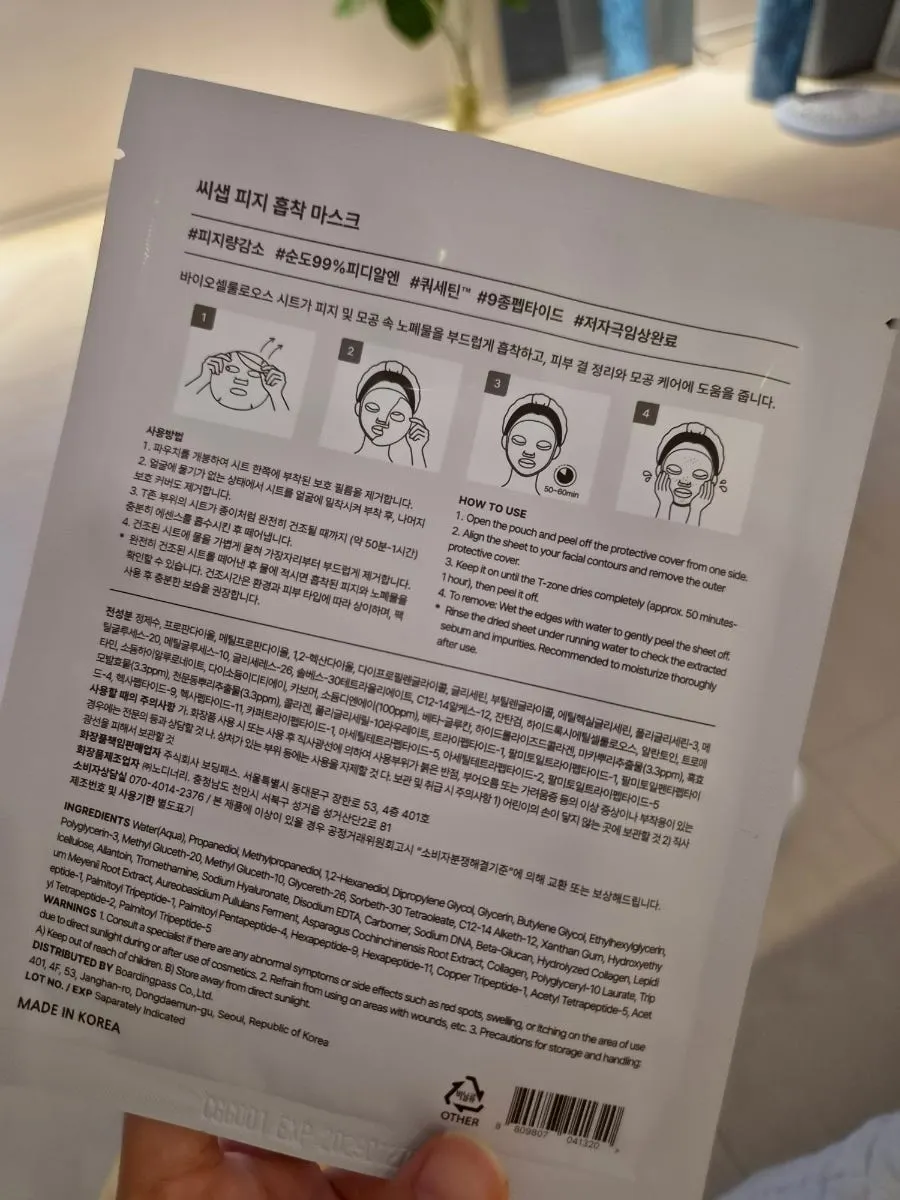 씨샙 피지 흡착 마스크
#피지량감소 #순도99%피디알엔 #쿼세틴™ #9종펩타이드 #저자극임상완료
바이오셀룰로오스 시트가 피지 및 모공 속 노폐물을 부드럽게 흡착하고, 피부 결 정리와 모공 케어에 도움을 줍니다.
1
2
3
4
50~60min
사용방법
1. 파우치를 개봉하여 시트 한쪽에 부착된 보호 필름을 제거합니다.
2. 얼굴에 물기가 없는 상태에서 시트를 얼굴에 밀착시켜 부착 후, 나머지
보호 커버도 제거합니다.
3. T존 부위의 시트가 종이처럼 완전히 건조될 때까지 (약 50분-1시간)
충분히 에센스를 흡수시킨 후 떼어냅니다.
4. 건조된 시트에 물을 가볍게 묻혀 가장자리부터 부드럽게 제거합니다.
* 완전히 건조된 시트를 떼어낸 후 물에 적시면 흡착된 피지와 노폐물을
확인할 수 있습니다. 건조시간은 환경과 피부 타입에 따라 상이하며, 팩
사용 후 충분한 보습을 권장합니다.
HOW TO USE
1. Open the pouch and peel off the protective cover from one side.
2. Align the sheet to your facial contours and remove the outer
protective cover.
3. Keep it on until the T-zone dries completely (approx. 50 minutes-
1 hour), then peel it off.
4. To remove: Wet the edges with water to gently peel the sheet off.
* Rinse the dried sheet under running water to check the extracted
sebum and impurities. Recommended to moisturize thoroughly
after use.
전성분 정제수, 프로판다이올, 메틸프로판다이올, 1,2-헥산다이올, 다이프로필렌글라이콜, 글리세린, 부틸렌글라이콜, 에틸헥실글리세린, 폴리글리세린-3, 메
틸글루세스-20, 메틸글루세스-10, 글리세레스-26, 솔베스-30테트라올리에이트, C12-14알케스-12, 잔탄검, 하이드록시에틸셀룰로오스, 알란토인, 트로메
타민, 소듐하이알루로네이트, 다이소듐이디티에이, 카보머, 소듐디엔에이(100ppm), 베타-글루칸, 하이드롤라이즈드콜라겐, 마카뿌리추출물(3.3ppm), 흑효
모발효물(3.3ppm), 천문동뿌리추출물(3.3ppm), 콜라겐, 폴리글리세릴-10라우레이트, 트라이펩타이드-1, 팔미토일트라이펩타이드-1, 팔미토일펜타펩타이
드-4, 헥사펩타이드-9, 헥사펩타이드-11, 카퍼트라이펩타이드-1, 아세틸테트라펩타이드-5, 아세틸테트라펩타이드-2, 팔미토일트라이펩타이드-5
사용할 때의 주의사항 가. 화장품 사용 시 또는 사용 후 직사광선에 의하여 사용부위가 붉은 반점, 부어오름 또는 가려움증 등의 이상 증상이나 부작용이 있는
경우에는 전문의 등과 상담할 것 나. 상처가 있는 부위 등에는 사용을 자제할 것 다. 보관 및 취급 시 주의사항 1) 어린이의 손이 닿지 않는 곳에 보관할 것 2) 직사
광선을 피해서 보관할 것
화장품책임판매업자 주식회사 보딩패스. 서울특별시 동대문구 장한로 53, 4층 401호
화장품제조업자 ㈜노디너리. 충청남도 천안시 서북구 성거읍 성거산단2로 81
소비자상담실 070-4014-2376 / 본 제품에 이상이 있을 경우 공정거래위원회고시 "소비자분쟁해결기준"에 의해 교환 또는 보상해드립니다.
제조번호 및 사용기한 별도표기
INGREDIENTS Water(Aqua), Propanediol, Methylpropanediol, 1,2-Hexanediol, Dipropylene Glycol, Glycerin, Butylene Glycol, Ethylhexylglycerin,
Polyglycerin-3, Methyl Gluceth-20, Methyl Gluceth-10, Glycereth-26, Sorbeth-30 Tetraoleate, C12-14 Alketh-12, Xanthan Gum, Hydroxyethy
lcellulose, Allantoin, Tromethamine, Sodium Hyaluronate, Disodium EDTA, Carbomer, Sodium DNA, Beta-Glucan, Hydrolyzed Collagen, Lepidi
um Meyenii Root Extract, Aureobasidium Pullulans Ferment, Asparagus Cochinchinensis Root Extract, Collagen, Polyglyceryl-10 Laurate, Trip
eptide-1, Palmitoyl Tripeptide-1, Palmitoyl Pentapeptide-4, Hexapeptide-9, Hexapeptide-11, Copper Tripeptide-1, Acetyl Tetrapeptide-5, Acet
yl Tetrapeptide-2, Palmitoyl Tripeptide-5
WARNINGS 1. Consult a specialist if there are any abnormal symptoms or side effects such as red spots, swelling, or itching on the area of use
due to direct sunlight during or after use of cosmetics. 2. Refrain from using on areas with wounds, etc. 3. Precautions for storage and handling:
A) Keep out of reach of children. B) Store away from direct sunlight.
DISTRIBUTED BY Boardingpass Co.,Ltd.
401, 4F, 53, Janghan-ro, Dongdaemun-gu, Seoul, Republic of Korea
LOT NO. / EXP Saparately Indicated
MADE IN KOREA
비닐류
OTHER
8 809807 041320 >